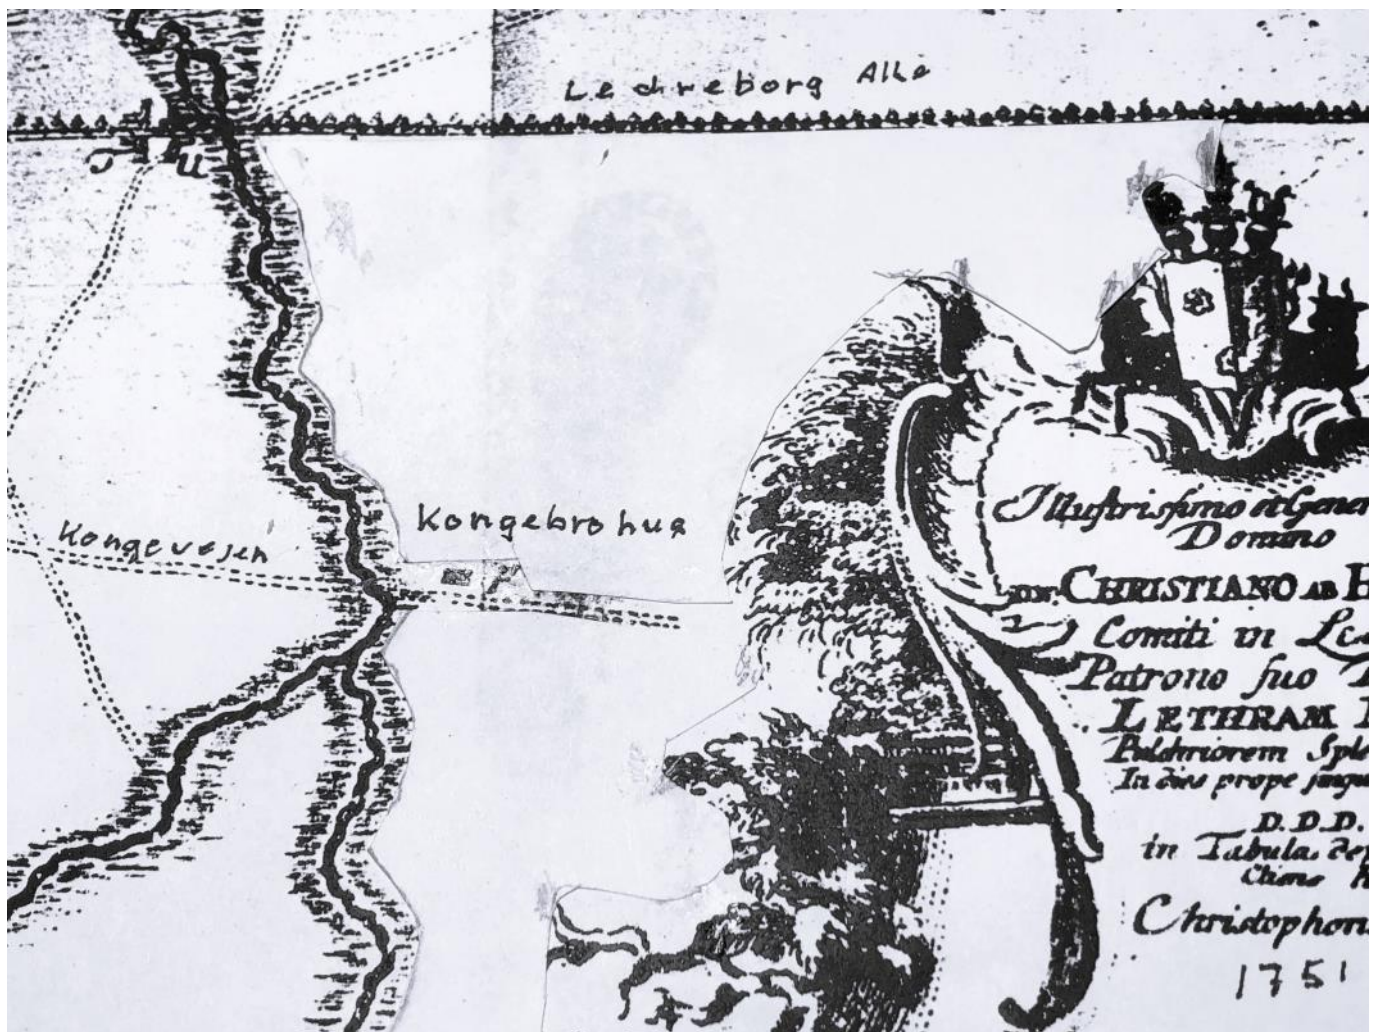 Ledreborg Alle
Kongebrohus
Kongevejen
Illustrissimo et Gener
Domino
DN. CHRISTIANO AB H
Comiti in
Patrono suo
LETHRAM
Pulchriorem Sple
In dies prope
D. D. D.
in Tabula
Christophoru
1751